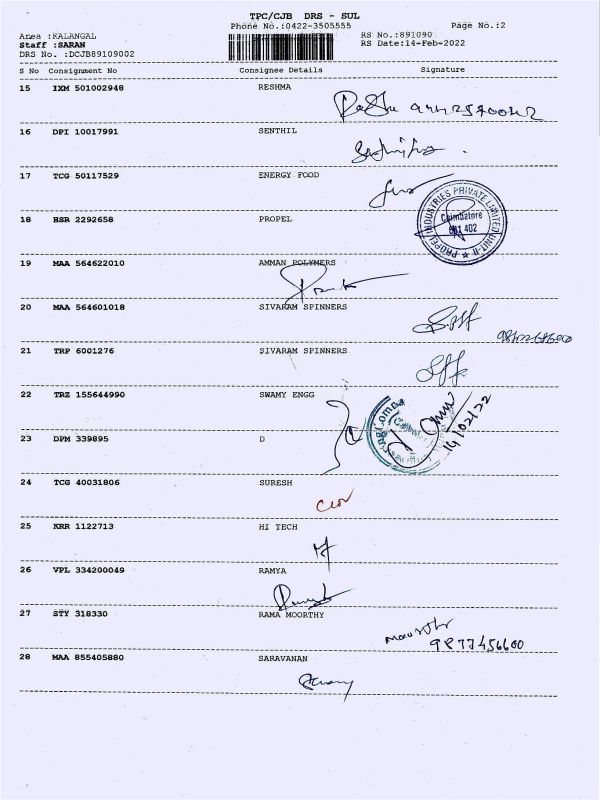 TPC/CJB DRS - SUL
Phone No.:0422-3505555
Page No.:2
Area :KALANGAL
Staff :SARAN
DRS No. :DCJB89109002
RS No.:891090
RS Date:14-Feb-2022
S No Consignment No Consignee Details Signature
15 IXM 501002948 RESHMA
16 DPI 10017991 SENTHIL
17 TCG 50117529 ENERGY FOOD
18 HSR 2292658 PROPEL
PROPEL INDUSTRIES PRIVATE LIMITED UNIT-II
Coimbatore
641 402
19 MAA 564622010 AMMAN POLYMERS
20 MAA 564601018 SIVARAM SPINNERS
21 TRP 6001276 SIVARAM SPINNERS
22 TRZ 155644990 SWAMY ENGG
14/02/22
23 DPM 339895 D
24 TCG 40031806 SURESH
25 KRR 1122713 HI TECH
26 VPL 334200049 RAMYA
27 STY 318330 RAMA MOORTHY
9877456600
28 MAA 855405880 SARAVANAN